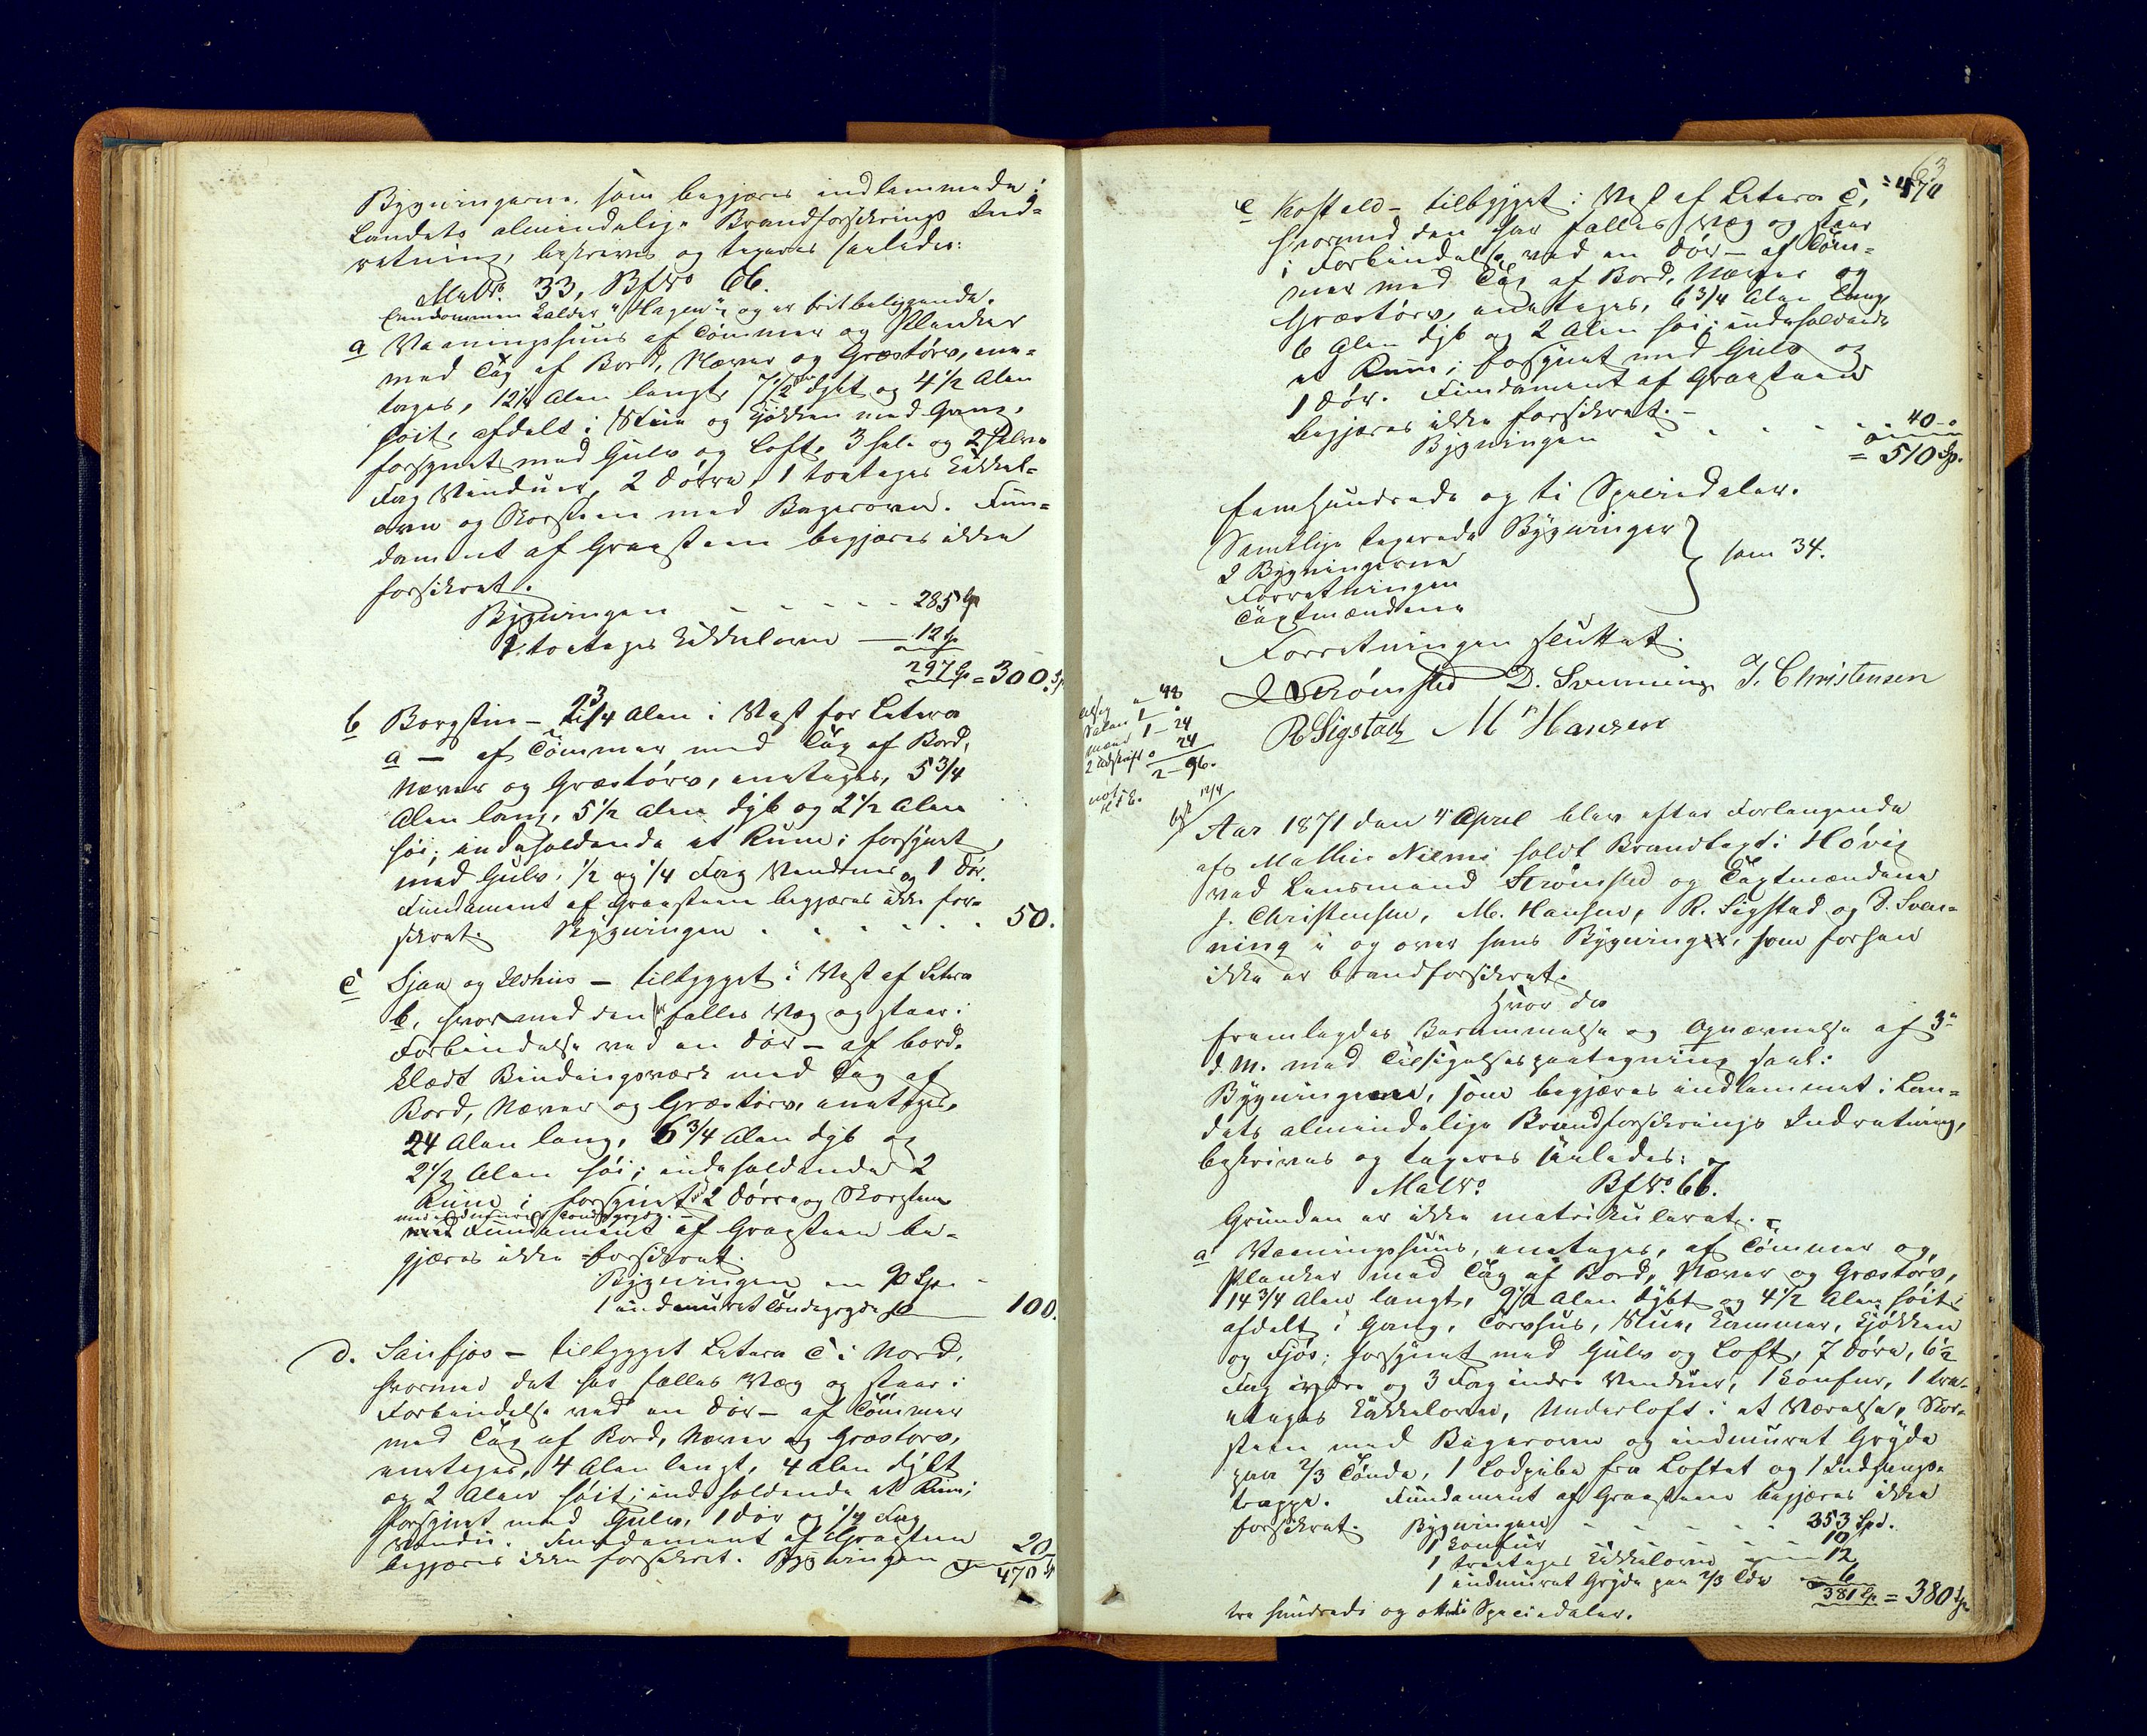 Bygningerne, som begjæres indlemmede i
Landets almindelige Brandforsikrings Ind-
retning, beskrives og taxeres saaledes:
MatNo. 33, BfNo 66.
Eiendommen kaldes "Hagen" og er fritbeliggende.
a Vaaningshuus af Tømmer og Planker
med Tag af Bord, Næver og Græstørv, een-
tages, 12¼ Alen langt, 7½ dybt og 4½ Alen
høit, afdelt i Stue og Kjøkken med Gang,
forsynet med Gulv og Loft, 3 hele og 2 halve
Fag Vinduer, 2 Dørre, 1 toetages Kakkel-
ovn og Skorsteen med Bagerovn. Fun-
dament af Graasteen begjæres ikke
forsikret.
Bygningen - - - - - 285 Sp
1 toetages Kakkelovn — 12 Sp
297 Sp = 300 Sp
b Borgstue - 23/4 Alen i Vest for Letera
a — af Tømmer med Tag af Bord,
Næver og Græstørv, eenetages, 5 3/4
Alen lang, 5 1/2 Alen dyb og 2 1/2 Alen
høi; indeholdende et Rum; forsynet
med Gulv, 1/2 og 1/4 Fag Vinduer og 1 Dør.
Fundament af Graasteen begjæres ikke for-
sikret. Bygningen . . . . . . 50.
c Sjaa og Ildhus — tilbygget i Vest af Letera
b, hvormed den har fælles Væg og staar i
Forbindelse ved en Dør — af bord-
klædt Bindingsværk med Tag af
Bord, Næver og Græstørv, eenetages,
24 Alen lang, 6 3/4 Alen dyb og
2 1/2 Alen høi; indeholdende 2
Rum; forsynet 2 Dørre og Skorsteen
med indmuret Tøndegryde. —
Fundament af Graasteen be-
gjæres ikke forsikret.
Bygningen en 90 Sp. -
1 indmuret Tøndegryde 10 — 100.
d. Sauefjøs — tilbygget Letera c i Nord,
hvormed det har fælles Væg og staar i
Forbindelse ved en Dør — af Tømmer
med Tag af Bord, Næver og Græstørv,
eenetages, 4 Alen langt, 4 Alen dybt
og 2 Alen høit; indeholdende et Rum;
forsynet med Gulv, 1 Dør og 1/4 Fag
Vindu. Fundament af Graasteen
begjæres ikke forsikret. Bygningen 20
470 Sp
63
= 470
e Kostald — tilbygget i Vest af Letera c,
hvormed den har fælles Væg og staar
i Forbindelse ved en Dør — af Tøm-
mer med Tag af Bord, Næver og
Græstørv, eenetages, 6 3/4 Alen lang,
6 Alen dyb og 2 Alen høi; indeholdende
et Rum; forsynet med Gulv og
1 Dør. Fundament af Graasteen
begjæres ikke forsikret. —
Bygningen - . . . . . 40 -
= 510 Sp.
femhundrede og ti Speciedaler.
Samtlige taxerede Bygninger
Bygningerne
Forretningen
Taxtmændene
} som 34.
Forretningen sluttet.
Strømsted D. Svenning J. Christensen
R Sigstad M Hansen
48
1 -
mænd 1 - 24
2 Udskrift 24
2 - 96.
not.
12/4
Aar 1871 den 4 April blev efter Forlangende
af Mathis Niemi holdt Brandtaxt i Høvig
ved Lensmand Strømsted og Taxtmændene
J. Christensen, M. Hansen, R. Sigstad og D. Sven-
ning i og over hans Bygning, som forhen
ikke er brandforsikret.
Hvor da
fremlagdes Berammelse og Opnævnelse af 3de
d. M. med Tilsigelsespaategning saal:
Bygningen, som begjæres indlemmet i Lan-
dets almindelige Brandforsikrings Indretning,
beskrives og taxeres saaledes:
MatNo. BfNo. 67.
Grunden er ikke matrikuleret. -
a Vaaningshuus, eenetages, af Tømmer og
Planker med Tag af Bord, Næver og Græstørv,
14 3/4 Alen langt, 9 1/2 Alen dybt og 4 1/2 Alen høit;
afdelt i Gang, Tørvhus, Stue, Kammer, Kjøkken
og Fjøs; forsynet med Gulv og Loft, 7 Døre, 6 1/2
Fag ydre og 3 Fag indre Vinduer, 1 Komfur, 1 tre-
etages Kakkelovn, Underloft i et Værelse, Skor-
steen med Bagerovn og indmuret Gryde
paa 2/3 Tønde, 1 Lodpibe fra Loftet og 1 Indgangs-
trappe. Fundament af Graasteen begjæres ikke
forsikret. Bygningen - - - - - 353 Spd.
1 Komfur 10
1 treetages Kakkelovn - - 12
1 indmuret Gryde paa 2/3 Tde 6
381 Sp = 380 Sp
tre hundrede og otteti Speciedaler.